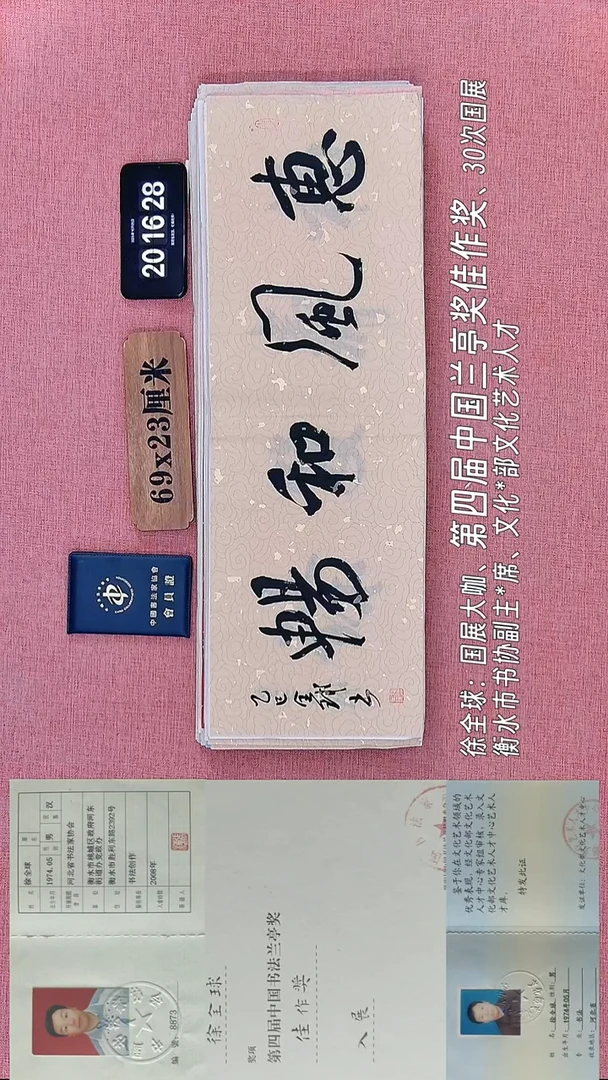 惠風和暢
乙巳全球書
20 16 28
69x23厘米
中國書法家協會
會員證
徐全球：国展大咖、第四届中国兰亭奖佳作奖、30次国展
衡水市书协副主*席、文化*部文化艺术人才
徐全球
男
汉
1974.05
河北省书法家协会
衡水市桃城区政府河东
街道办党政办
衡水市胜利东路2392号
书法创作
2008年
8873
徐全球
奖项
第四届中国书法兰亭奖
佳作奖
入展
鉴于你在文化艺术领域的
优秀表现，经文化部文化艺术
人才中心专家组审核，录入文
化部文化艺术人才中心艺术人
才库。
特发此证
发证单位：文化部文化艺术人才中心
姓名：徐全球 性别：男
出生年月：1974年05月
专业：书法
核准地区：河北省